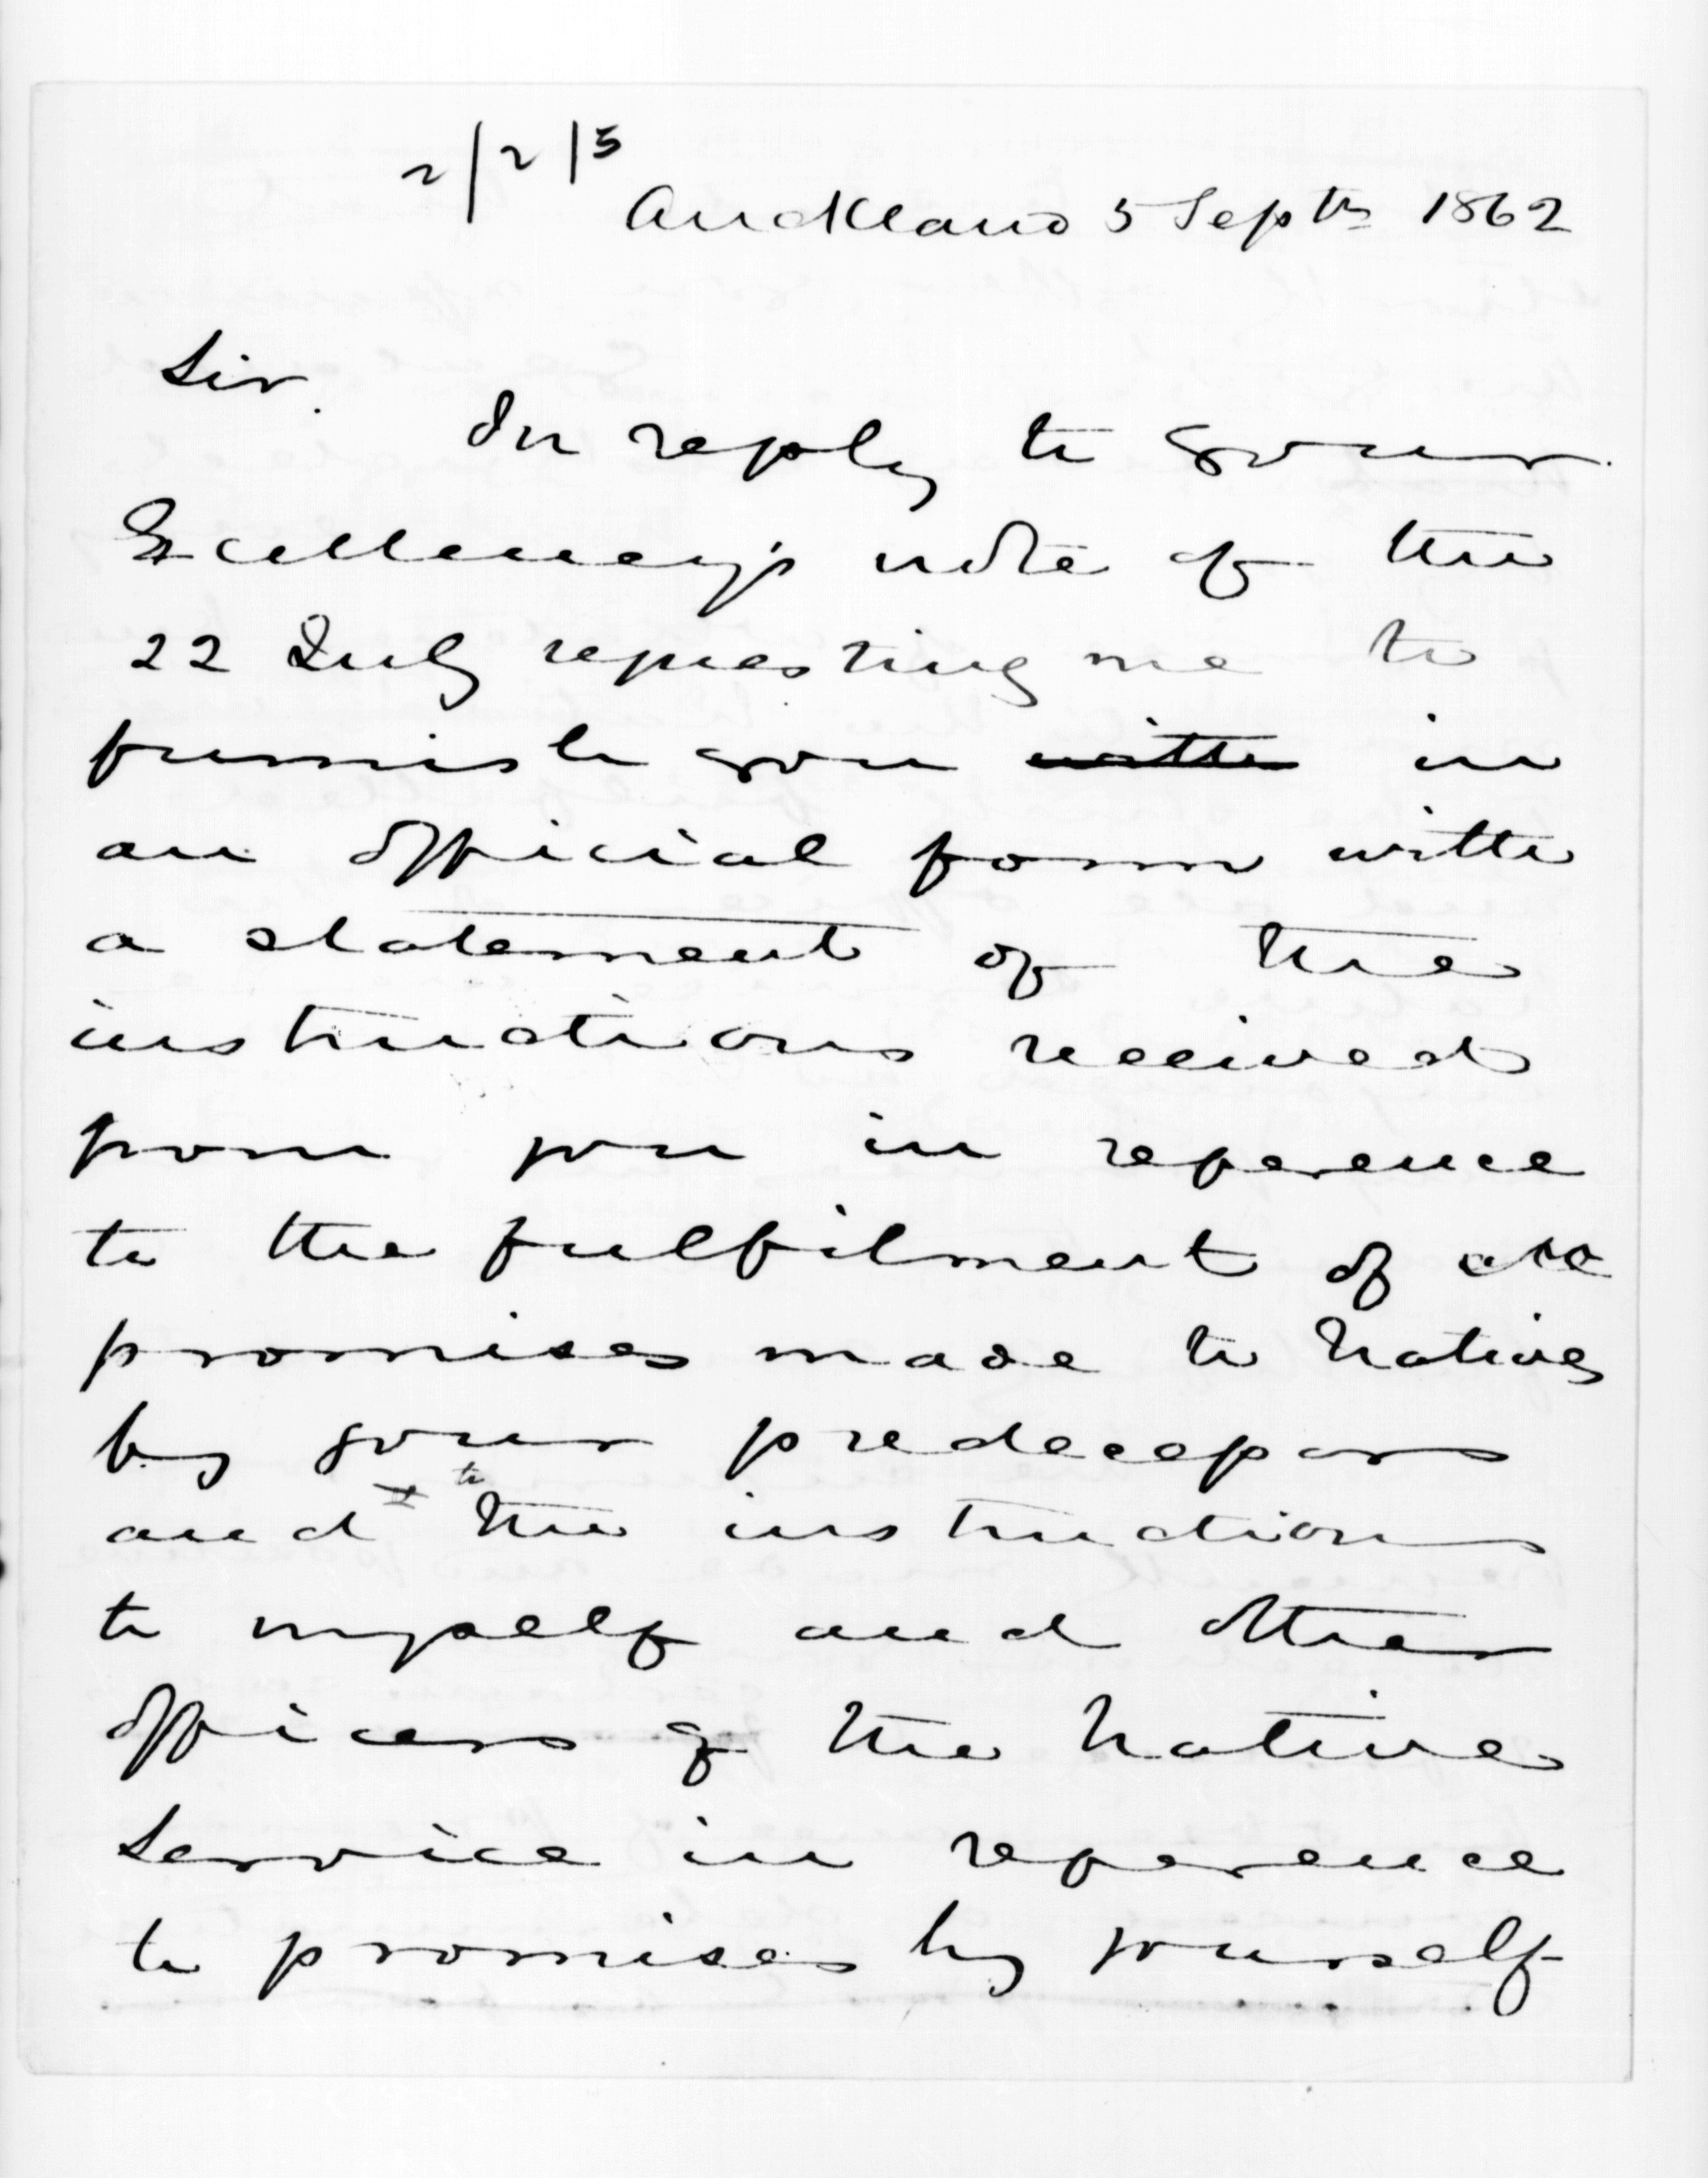 2/2/5
Auckland 5 Septr 1862
Sir.
In reply to your
Excellency's note of the
22 July requesting me to
furnish you with in
an official form with
a statement of the
instructions received
from you in reference
to the fulfilment of all
promises made to Natives
by your predecessors
to
and the instructions
to myself and other
officers of the Native
Service in reference
to promises by yourself